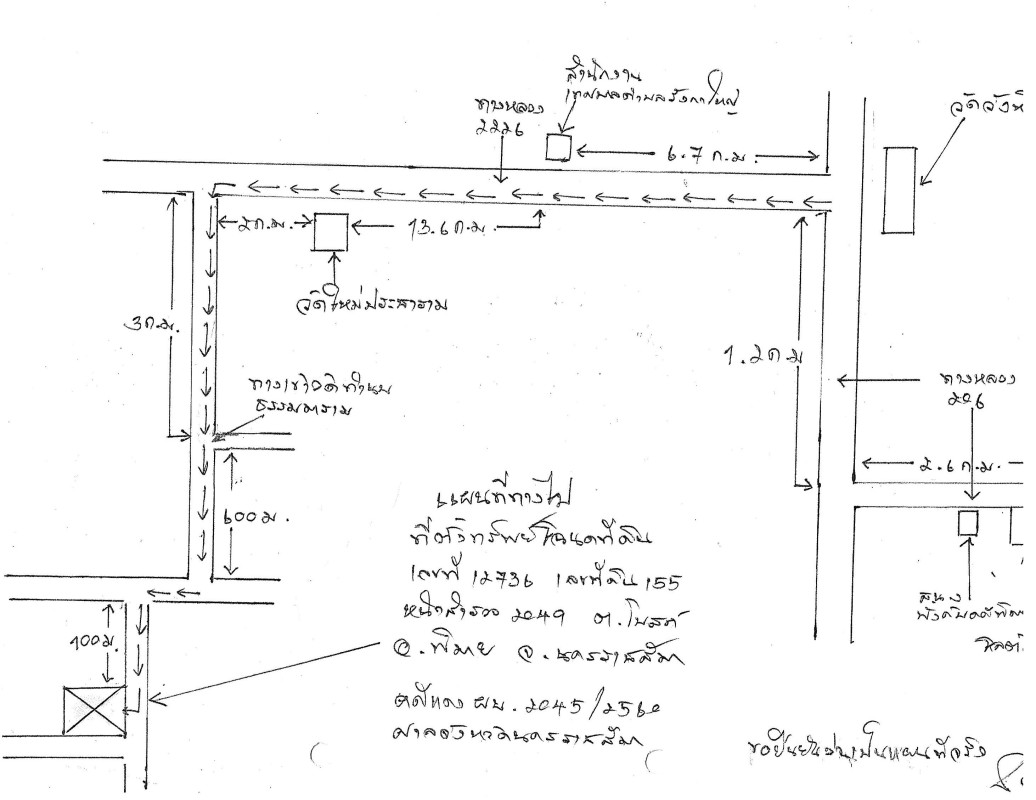 สำนักงาน
เทศบาลตำบลรังกาใหญ่
ทางหลวง
2226
6.7 ก.ม.
วัดวังหิ
2 ก.ม.
13.6 ก.ม.
วัดใหม่ประชาราม
3 ก.ม.
1.2 ก.ม
ทางเข้าวัด
ธรรมาราม
ทางหลวง
226
2.6 ก.ม.
600 ม.
แผนที่ทางไป
ที่ตั้งทรัพย์โฉนดที่ดิน
เลขที่ 12736 เลขที่ดิน 155
หน้าสำรวจ 2049 ต.โบสถ์
อ.พิมาย จ.นครราชสีมา
400 ม.
คดีแดง ผบ. 2045/2560
ศาลจังหวัดนครราชสีมา
ขอยืนยันว่าเป็นแผนที่จริง